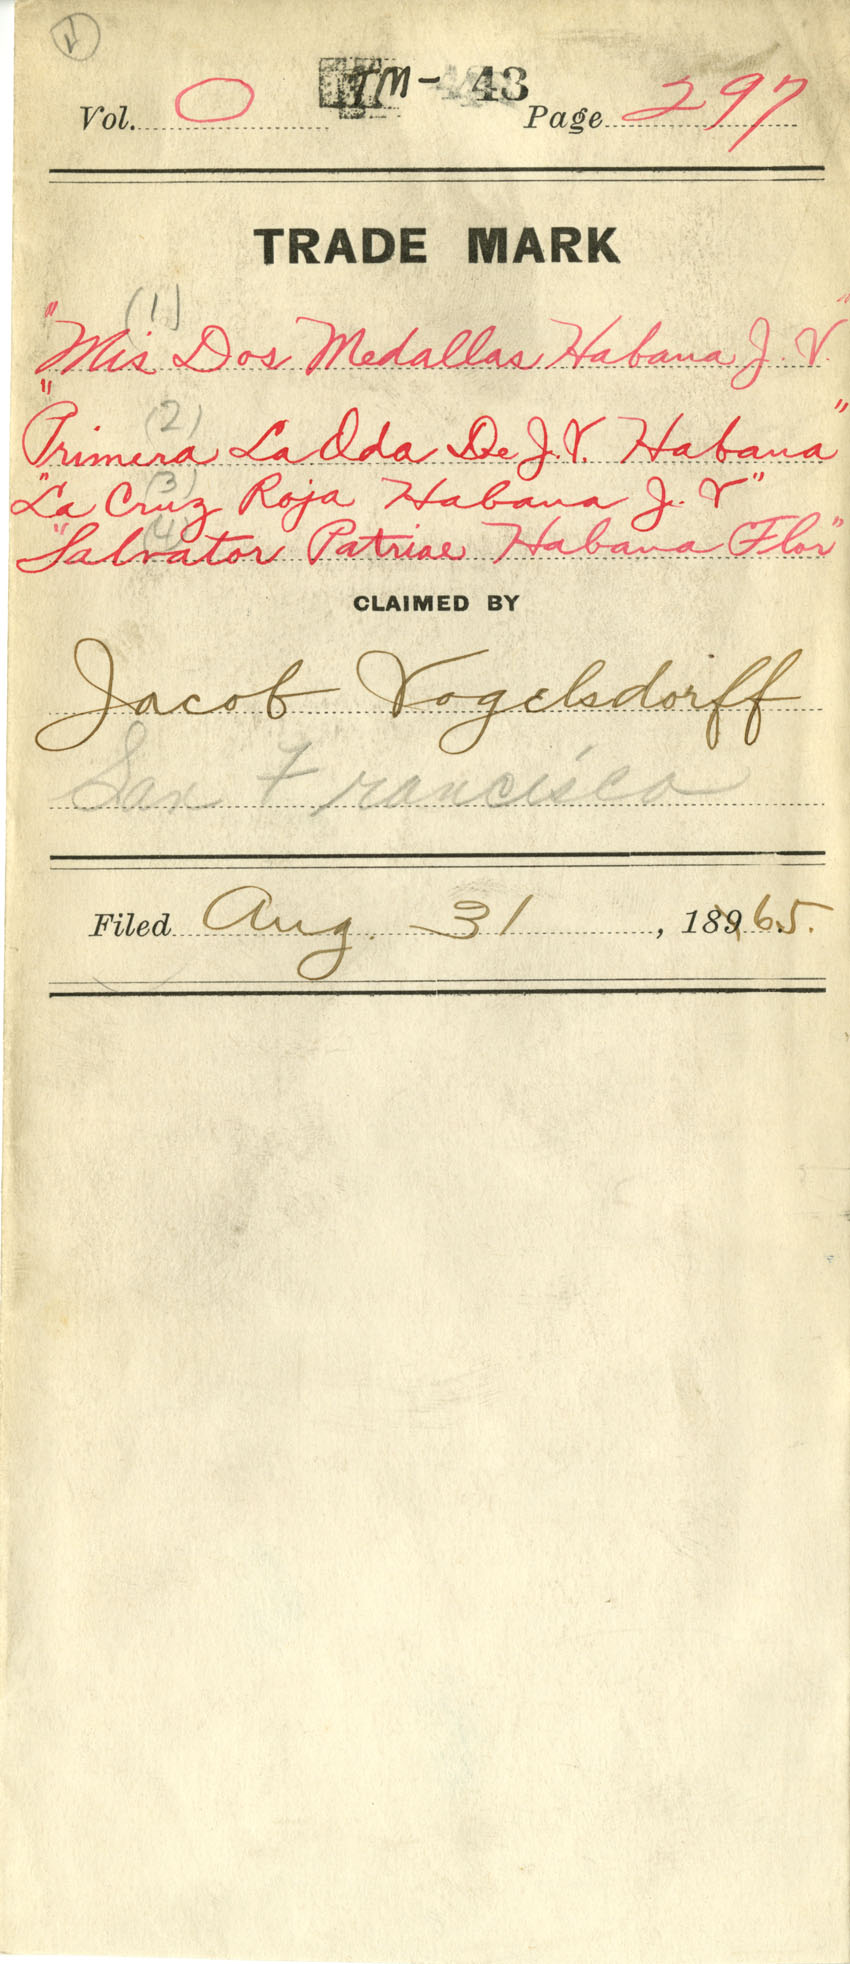 Vol. O TM- 43 Page 297
TRADE MARK
(1)
"Mis Dos Medallas Habana J. V."
(2)
"Primera La Oda De J. V. Habana"
(3)
"La Cruz Roja Habana J. V"
(4)
"Salvator Patriae Habana Flor"
CLAIMED BY
Jacob Vogelsdorff
San Francisco
Filed Aug. 31, 189 65.